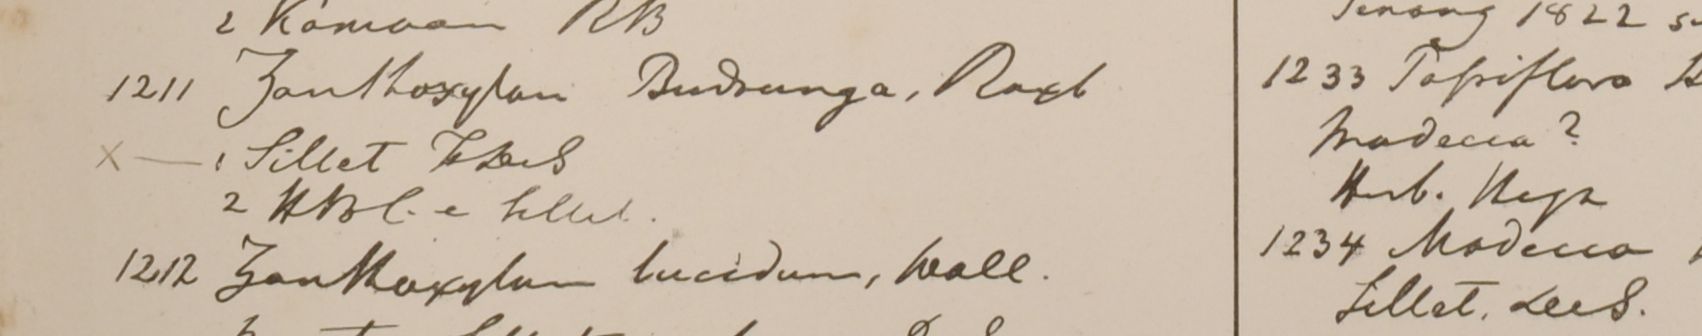 2 Kamaon RB
1211 Zanthoxylon Budrunga, Roxb
X — 1 Sillet
2 HBC. e Sillet.
1212 Zanthoxylum lucidum, Wall.
Penang 1822
1233 Passiflora
Modecca?
Herb. Heyn
1234 Modecca
Sillet.